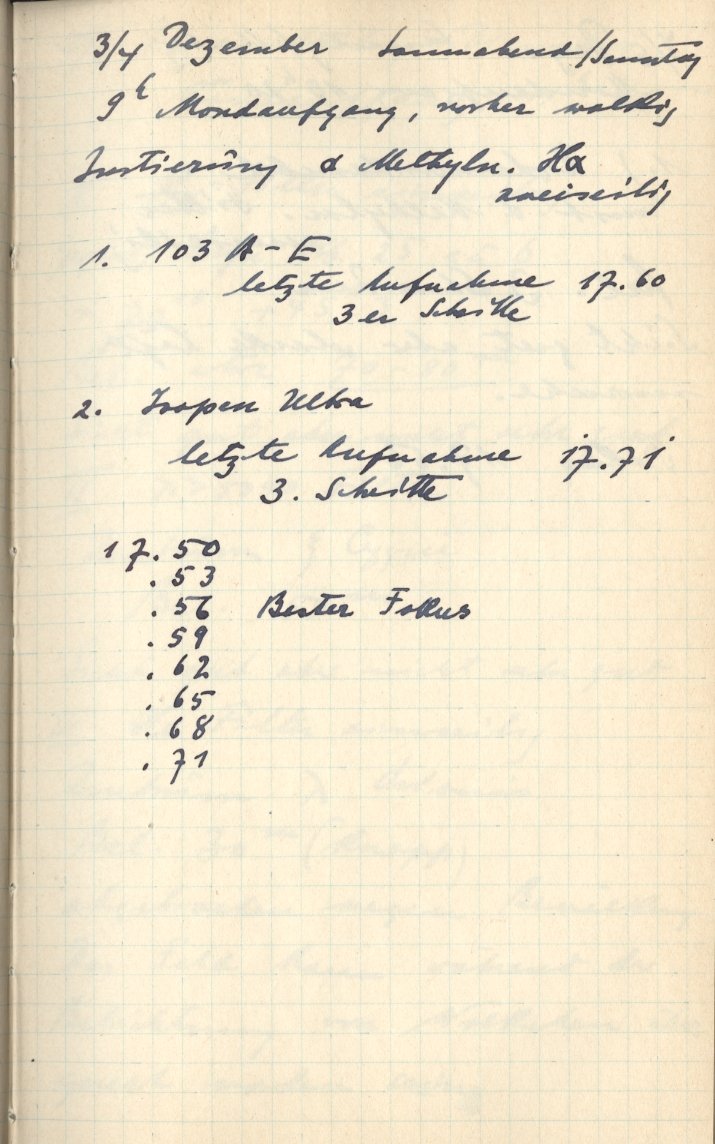 3/4 Dezember Sonnabend/Sonntag
9h Mondaufgang, vorher wolkig
Justierung α Methyln. Hα
zweiseitig
1. 103 A-E
letzte Aufnahme 17.60
3er Schritte
2. Isopan Ultra
letzte Aufnahme 17.71
3. Schritte
17.50
.53
.56 Bester Fokus
.59
.62
.65
.68
.71